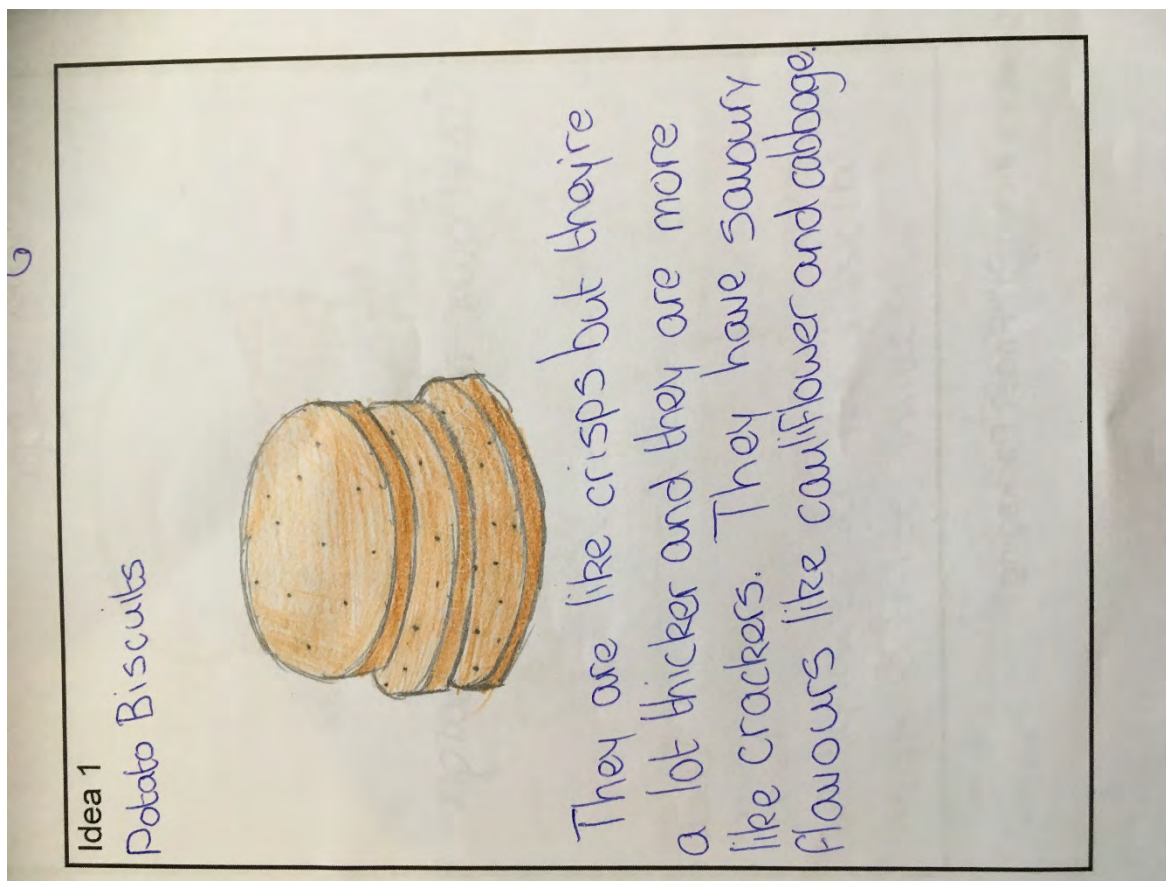 6
Idea 1
Potato Biscuits
They are like crisps but they're
a lot thicker and they are more
like crackers. They have savoury
flavours like cauliflower and cabbage.